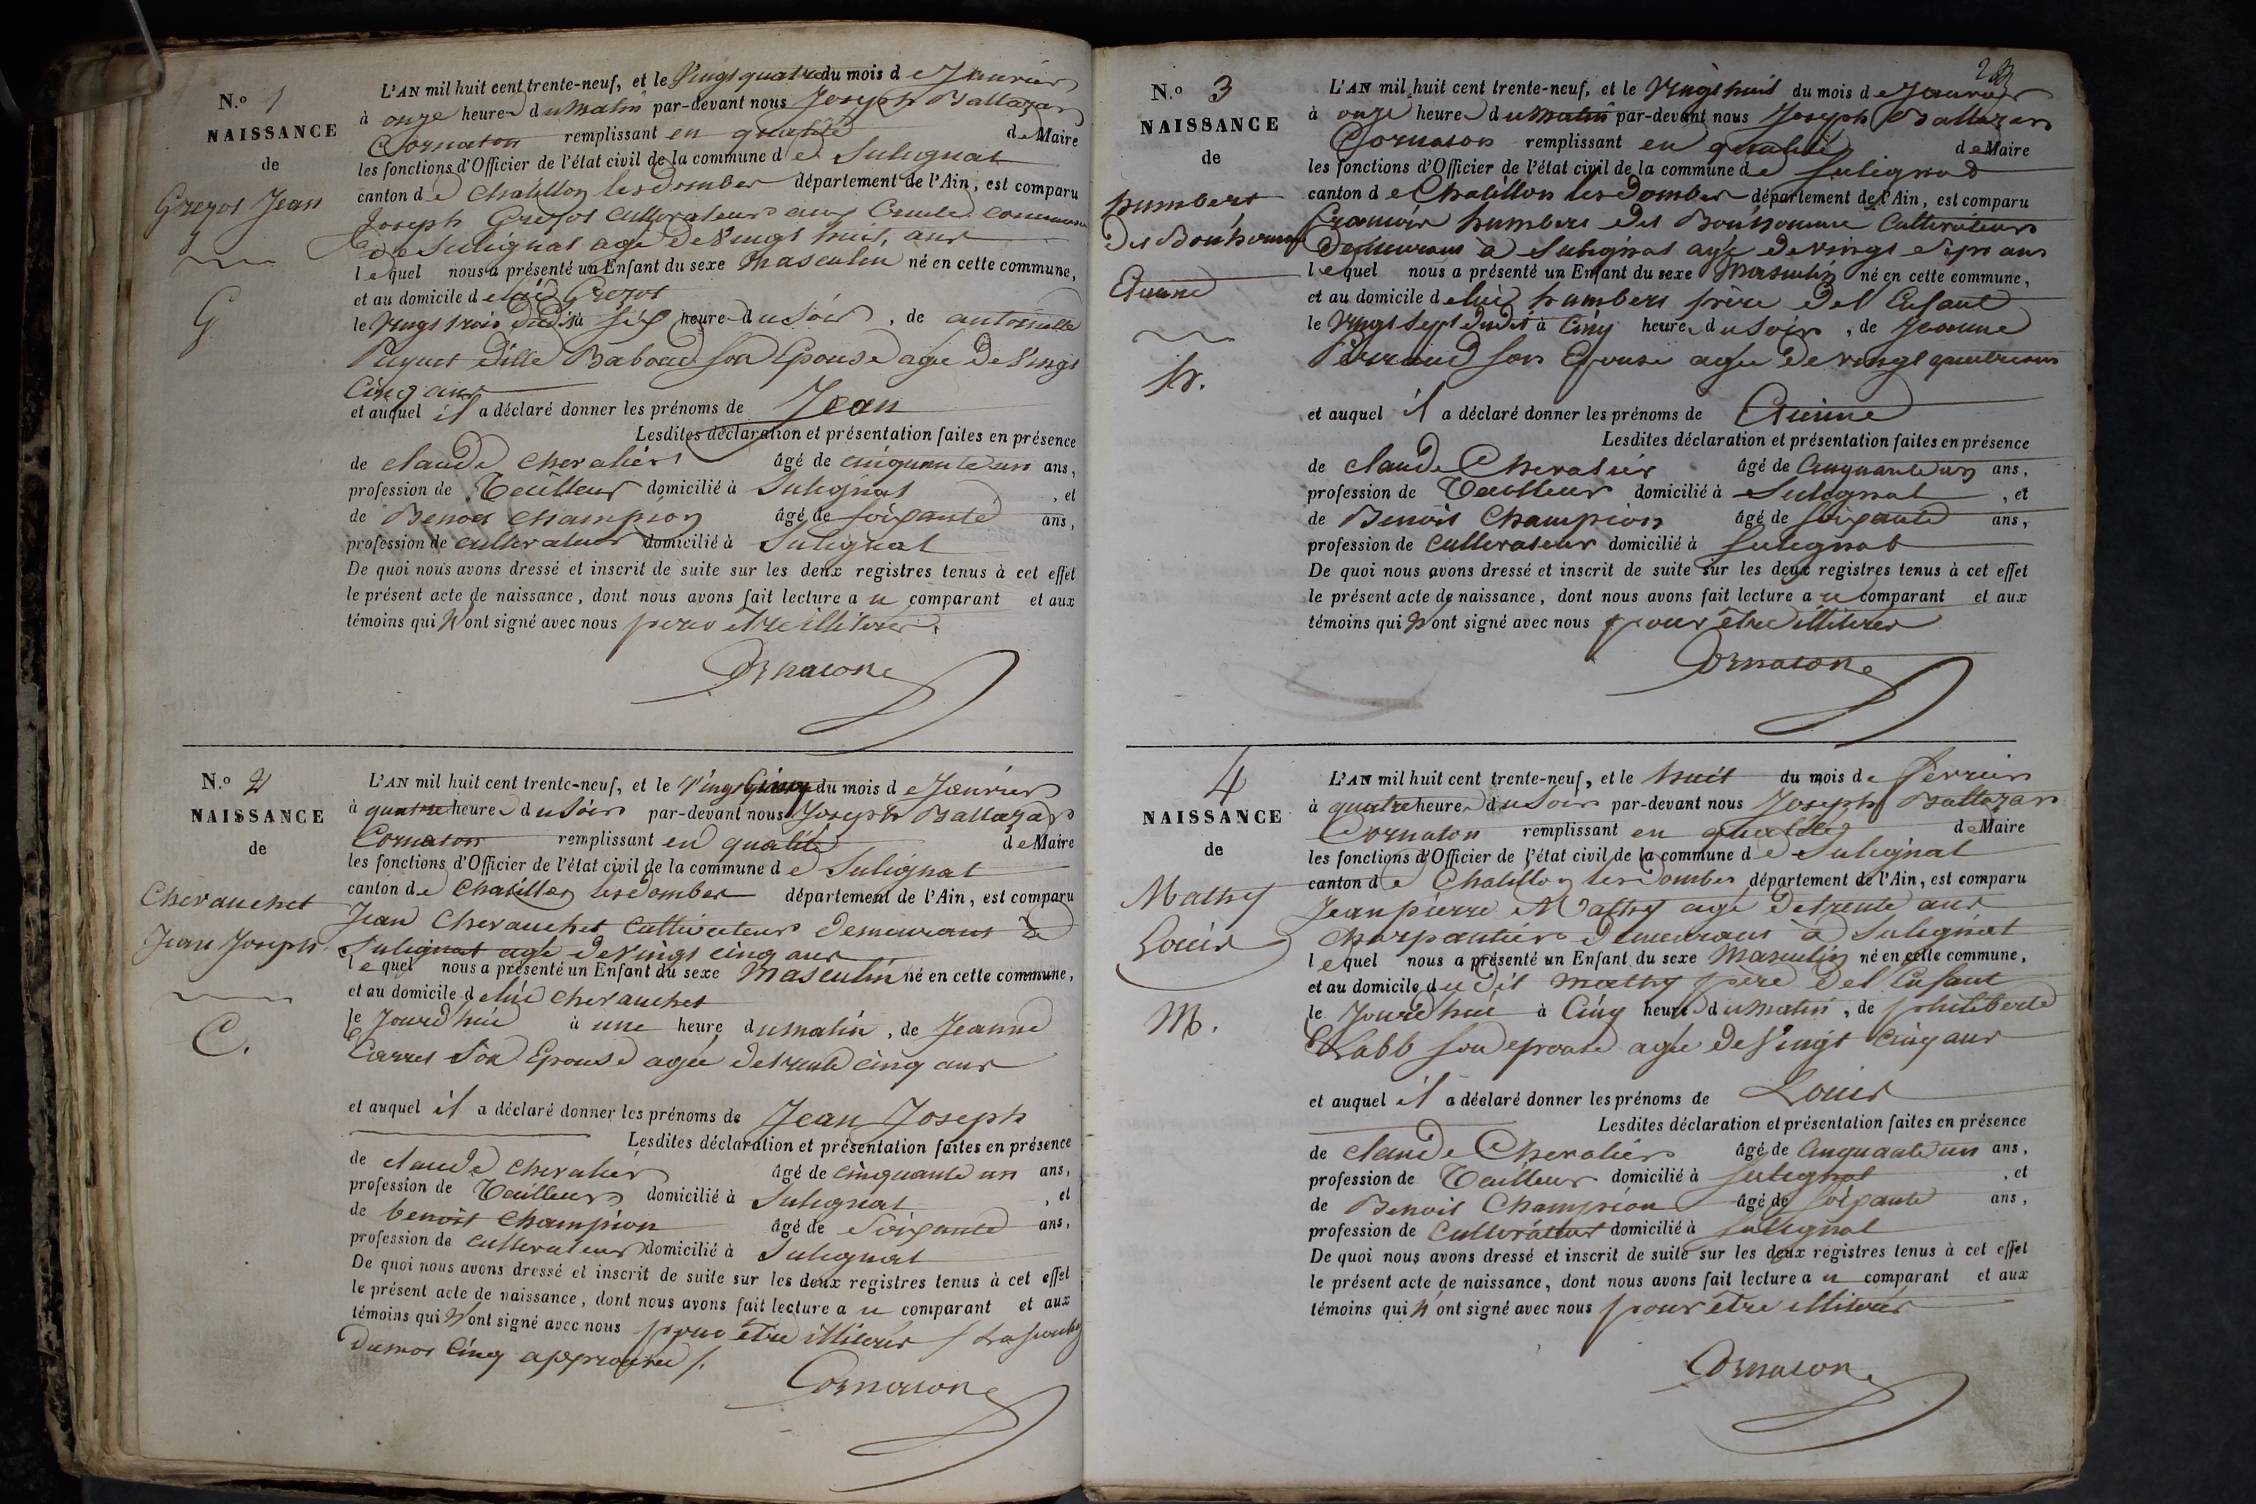 N.o 1
NAISSANCE
de
Grezot Jean
G
L'AN mil huit cent trente-neuf, et le Vingt quatre du mois de Janvier
à onze heure du Matin par-devant nous Joseph Baltazar
Cornaton remplissant en qualité de Maire
les fonctions d'Officier de l'état civil de la commune de Sulignat
canton de Chatillon les dombes département de l'Ain, est comparu
Joseph Grezot Cultivateur commune
de Sulignat agé de Vingt huit ans
lequel nous a présenté un Enfant du sexe Masculin né en cette commune,
et au domicile de Grezot
le Vingt trois dudit à six heure du Soir, de antoinette
Puquet dille Baboud son Epouse agée de Vingt
Cinq ans
et auquel il a déclaré donner les prénoms de Jean
Lesdites déclaration et présentation faites en présence
de claude chevalier âgé de cinquante un ans,
profession de Tailleur domicilié à Sulignat, et
de Benoit champion âgé de soixante ans,
profession de cultivateur domicilié à Sulignat
De quoi nous avons dressé et inscrit de suite sur les deux registres tenus à cet effet
le présent acte de naissance, dont nous avons fait lecture au comparant et aux
témoins qui N'ont signé avec nous pour être illiterés.
Cornaton
N.o 2
NAISSANCE
de
Chevauchet
Jean Joseph
C.
L'AN mil huit cent trente-neuf, et le Vingt Cinq du mois de Janvier
à quatre heure du Soir par-devant nous Joseph Baltazar
Cornaton remplissant en qualité de Maire
les fonctions d'Officier de l'état civil de la commune de Sulignat
canton de Chatillon les dombes département de l'Ain, est comparu
Jean Chevauchet Cultivateur demeurant à
Sulignat agé de Vingt cinq ans
lequel nous a présenté un Enfant du sexe Masculin né en cette commune,
et au domicile de chevauchet
le Jourd'hui à une heure du matin, de Jeanne
Carret Son Epouse agée de trente cinq ans
et auquel il a déclaré donner les prénoms de Jean Joseph
Lesdites déclaration et présentation faites en présence
de claude chevalier âgé de cinquante un ans,
profession de Tailleur domicilié à Sulignat, et
de benoit champion âgé de Soixante ans,
profession de cultivateur domicilié à Sulignat
De quoi nous avons dressé et inscrit de suite sur les deux registres tenus à cet effet
le présent acte de naissance, dont nous avons fait lecture au comparant et aux
témoins qui N'ont signé avec nous pour être illiterés / La surcharge
du mot Cinq approuvée /.
Cornaton
N.o 3
NAISSANCE
de
humbert
des Bonhomme
Etienne
h.
L'AN mil huit cent trente-neuf, et le Vingt huit du mois de Janvier
à onze heure du Matin par-devant nous Joseph Baltazar
Cornaton remplissant en qualité de Maire
les fonctions d'Officier de l'état civil de la commune de Sulignat
canton de Chatillon les dombes département de l'Ain, est comparu
francois humbert des Bonhomme Cultivateur
demeurant à Sulignat agé de vingt sept ans
lequel nous a présenté un Enfant du sexe Masculin né en cette commune,
et au domicile de humbert père de l'Enfant
le Vingt Sept dudit à Cinq heure du Soir, de Jeanne
Perraud son Epouse agée de vingt quatre ans
et auquel il a déclaré donner les prénoms de Etienne
Lesdites déclaration et présentation faites en présence
de claude Chevalier âgé de Cinquante un ans,
profession de Tailleur domicilié à Sulignat, et
de Benoit Champion âgé de soixante ans,
profession de Cultivateur domicilié à Sulignat
De quoi nous avons dressé et inscrit de suite sur les deux registres tenus à cet effet
le présent acte de naissance, dont nous avons fait lecture au comparant et aux
témoins qui N'ont signé avec nous pour être illiterés
Cornaton
4
NAISSANCE
de
Mathy
Louis
M.
L'AN mil huit cent trente-neuf, et le huit du mois de fevrier
à quatre heure du Soir par-devant nous Joseph Baltazar
Cornaton remplissant en qualité de Maire
les fonctions d'Officier de l'état civil de la commune de Sulignat
canton de Chatillon les dombes département de l'Ain, est comparu
Jean pierre Mathy agé de trente ans
charpantier demeurant à Sulignat
lequel nous a présenté un Enfant du sexe Masculin né en cette commune,
et au domicile du dit mathy père de l'Enfant
le Jourd'hui à Cinq heure du Matin, de philiberte
Rabb son epouse agée de Vingt Cinq ans
et auquel il a déclaré donner les prénoms de Louis
Lesdites déclaration et présentation faites en présence
de claude Chevalier âgé de Cinquante un ans,
profession de Tailleur domicilié à Sulignat, et
de Benoit Champion âgé de soixante ans,
profession de Cultivateur domicilié à Sulignat
De quoi nous avons dressé et inscrit de suite sur les deux registres tenus à cet effet
le présent acte de naissance, dont nous avons fait lecture au comparant et aux
témoins qui N'ont signé avec nous pour être illiterés
Cornaton